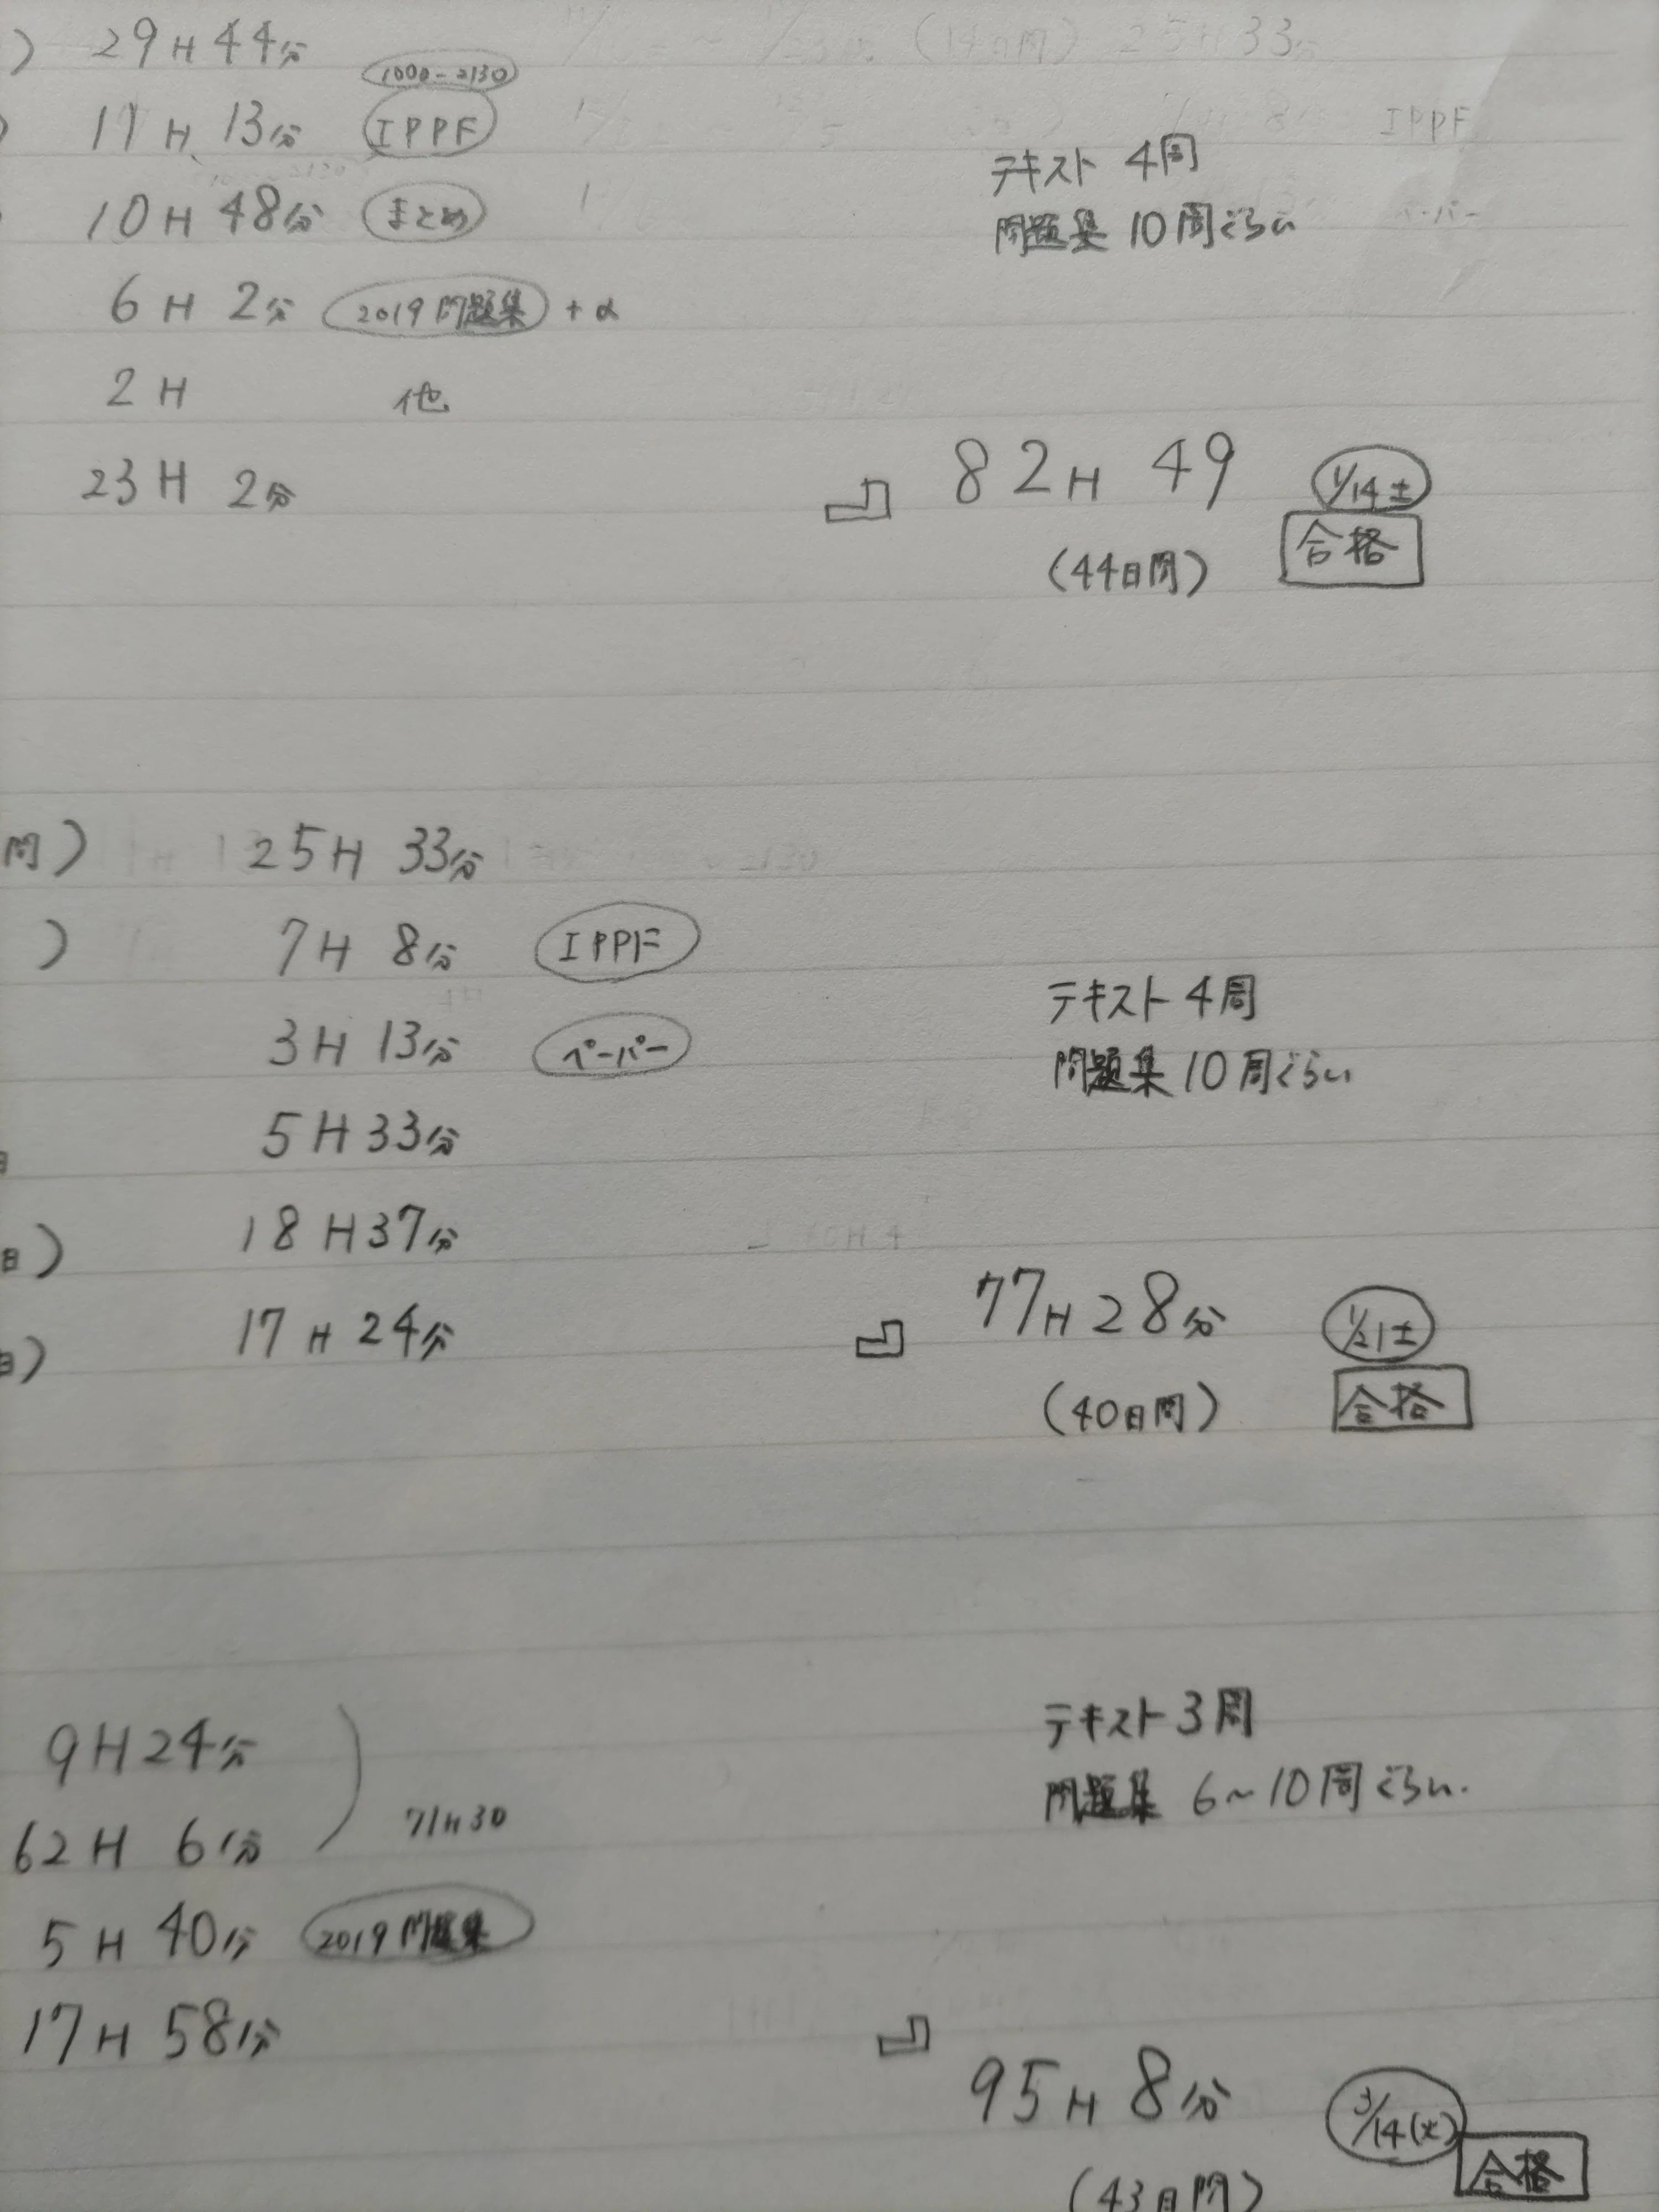 ) 29H 44分
1000-2130
) 11H 13分 IPPF
10H 48分 まとめ
テキスト 4周
問題集 10周ぐらい
6H 2分 2019問題集 +α
2H 他
23H 2分
82H 49
1/14土
合格
(44日間)
間) 25H 33分
) 7H 8分 IPPF
3H 13分 ペーパー
テキスト 4周
問題集 10周ぐらい
5H 33分
日) 18H 37分
日) 17H 24分
77H 28分
1/21土
合格
(40日間)
9H 24分
62H 6分
71H30
テキスト 3周
問題集 6〜10周ぐらい.
5H 40分 2019問題集
17H 58分
95H 8分
3/14(火)
合格
(43日間)